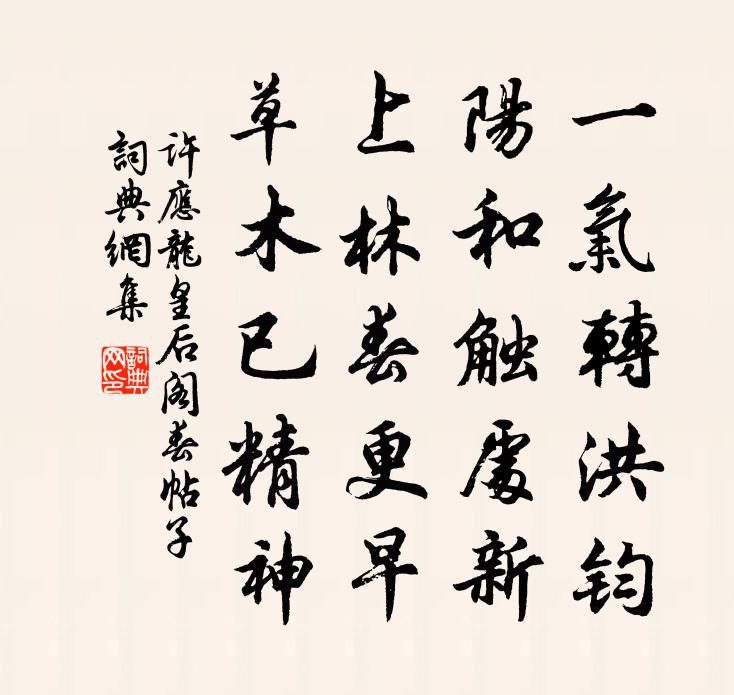 一氣轉洪钧
陽和触處新
上林春更早
草木已精神
許應龍皇后阁春帖子
詞典網集
詞典网印